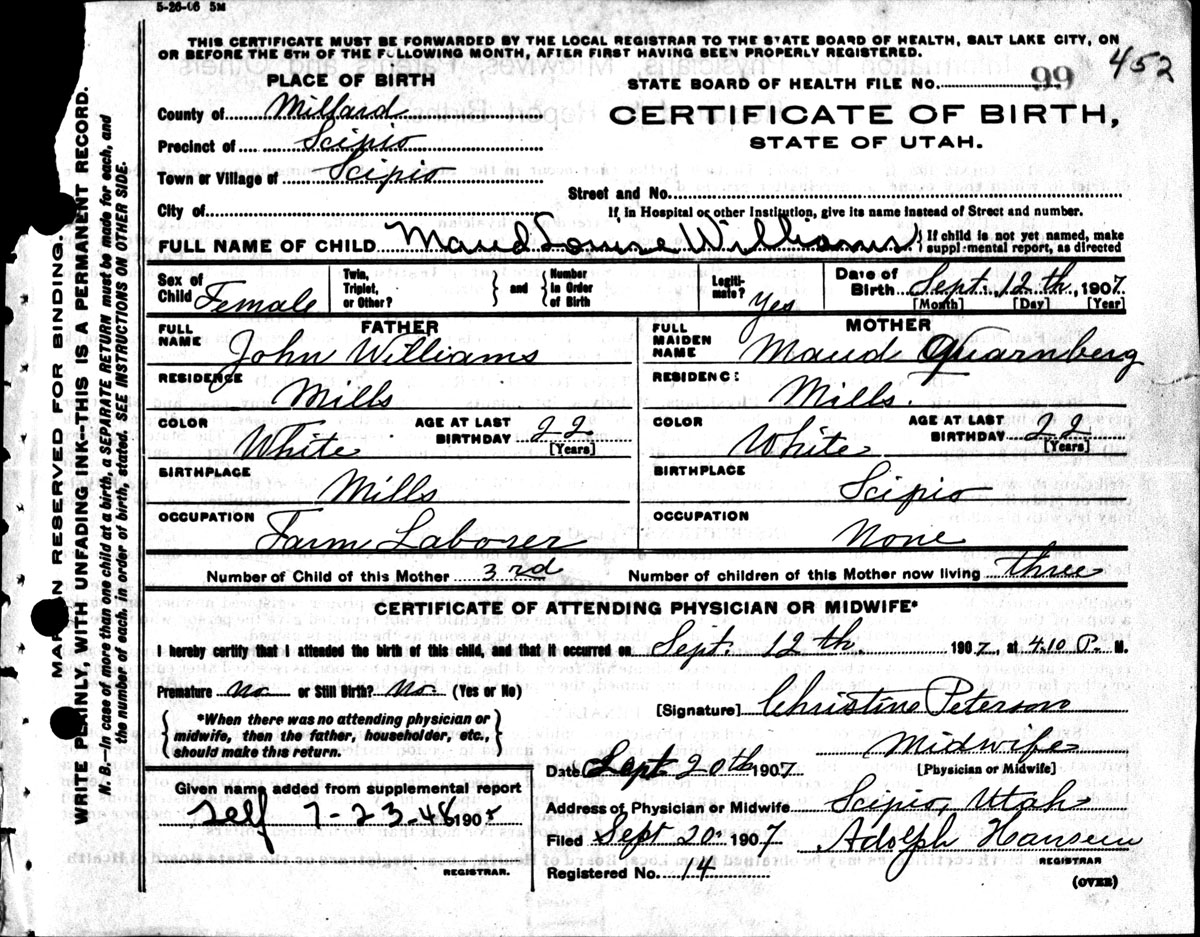 5-26-06 5M
THIS CERTIFICATE MUST BE FORWARDED BY THE LOCAL REGISTRAR TO THE STATE BOARD OF HEALTH, SALT LAKE CITY, ON
OR BEFORE THE 5TH OF THE FOLLOWING MONTH, AFTER FIRST HAVING BEEN PROPERLY REGISTERED.
452
PLACE OF BIRTH
STATE BOARD OF HEALTH FILE NO. 99
County of Millard
CERTIFICATE OF BIRTH,
STATE OF UTAH.
Precinct of Scipio
Town or Village of Scipio
Street and No.
City of
If, in Hospital or other Institution, give its name instead of Street and number.
FULL NAME OF CHILD Maud Louise Williams } If child is not yet named, make
supplemental report, as directed
Sex of Child Female
Twin, Triplet, or Other? } and { Number in Order of Birth
Legitimate? Yes
Date of Birth Sept. 12th, 1907
[Month] [Day] [Year]
FATHER
FULL NAME John Williams
RESIDENCE Mills
COLOR White AGE AT LAST BIRTHDAY 22 [Years]
BIRTHPLACE Mills
OCCUPATION Farm Laborer
MOTHER
FULL MAIDEN NAME Maud Quarnberg
RESIDENCE Mills.
COLOR White AGE AT LAST BIRTHDAY 22 [Years]
BIRTHPLACE Scipio
OCCUPATION None
Number of Child of this Mother 3rd Number of children of this Mother now living three
CERTIFICATE OF ATTENDING PHYSICIAN OR MIDWIFE*
I hereby certify that I attended the birth of this child, and that it occurred on Sept. 12th. 1907, at 4.10 P. M.
Premature no or Still Birth? No. (Yes or No)
{ *When there was no attending physician or
midwife, then the father, householder, etc.,
should make this return. }
[Signature] Christine Peterson
Midwife
[Physician or Midwife]
Date Sept 20th 1907
Given name added from supplemental report
self 7-23-48 190
REGISTRAR.
Address of Physician or Midwife Scipio, Utah
Filed Sept 20. 1907 Adolph Hansen
REGISTRAR
Registered No. 14
(OVER)
MARGIN RESERVED FOR BINDING.
WRITE PLAINLY, WITH UNFADING INK--THIS IS A PERMANENT RECORD.
N. B.—In case of more than one child at a birth, a SEPARATE RETURN must be made for each, and
the number of each, in order of birth, stated. SEE INSTRUCTIONS ON OTHER SIDE.